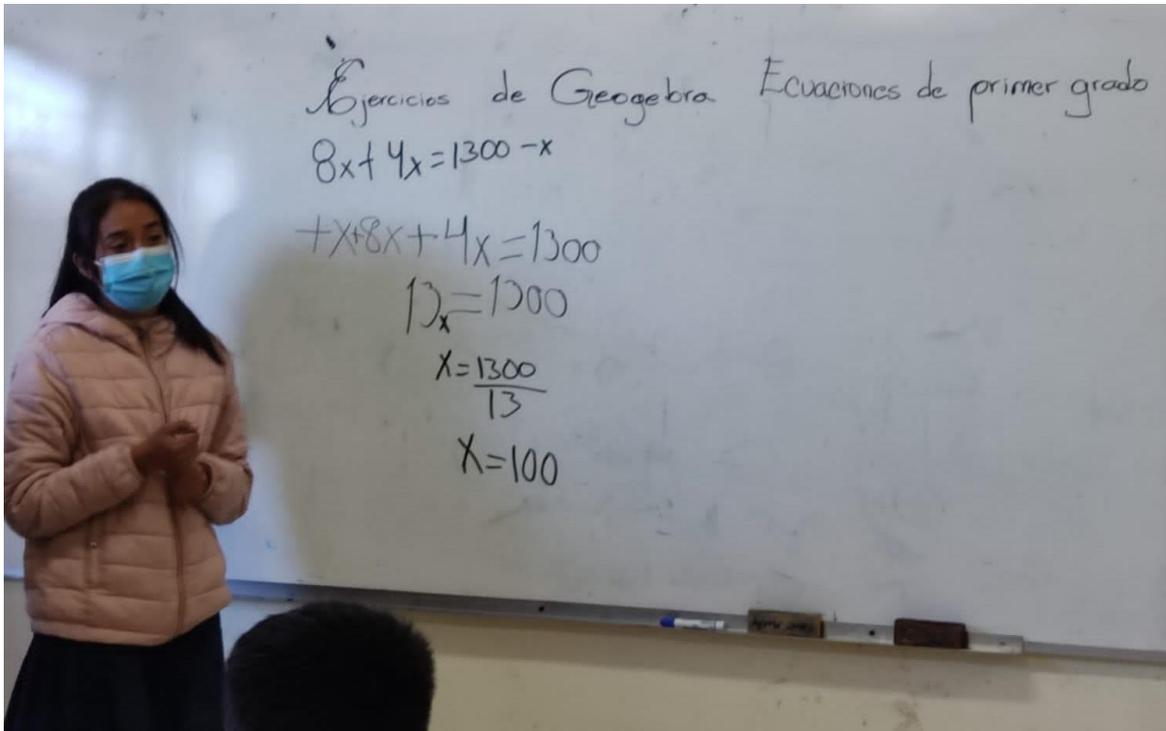 Ejercicios de Geogebra Ecuaciones de primer grado
8x+4x=1300-x
+x+8x+4x=1300
13x=1300
x=1300
13
x=100